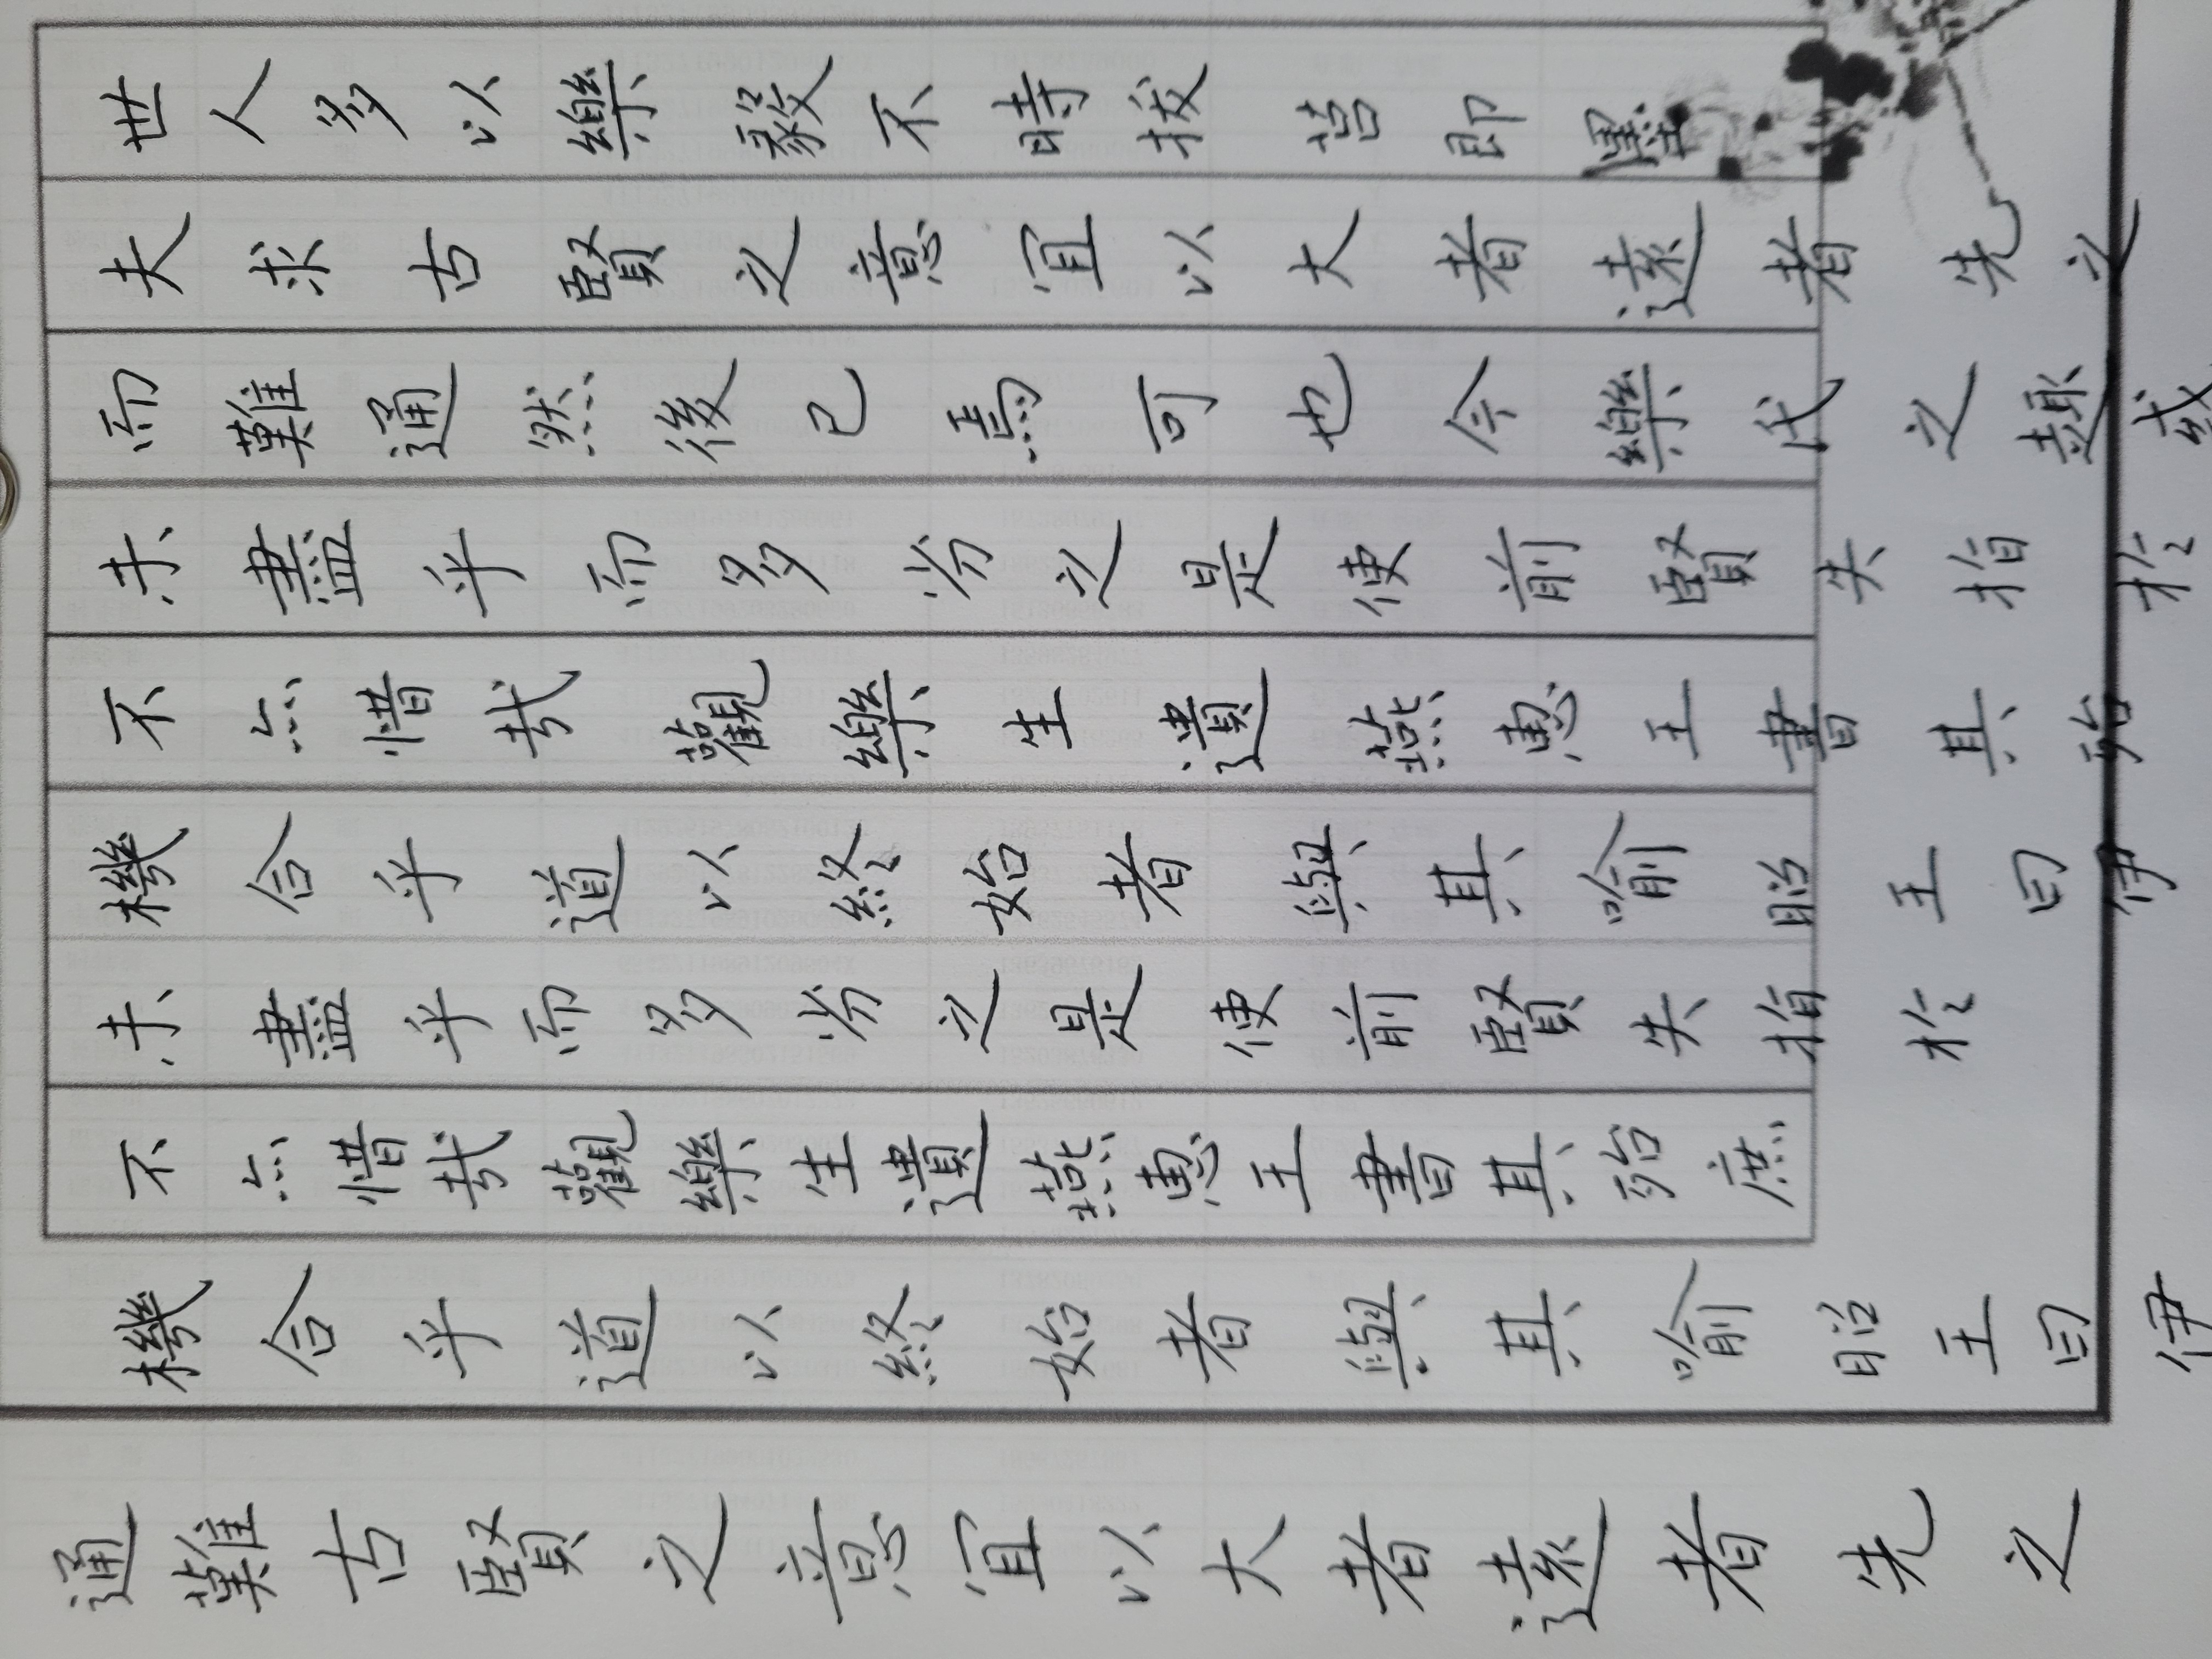 世人多以樂毅不時拔莒即墨
夫求古賢之意宜以大者遠者先之
而難通然後已焉可也今樂氏之趣或
未盡乎而多劣之是使前賢失指於
不亦惜哉觀樂生遺燕惠王書其殆
機合乎道以終始者與其喻昭王曰伊
未盡乎而多劣之是使前賢失指於
不亦惜哉觀樂生遺燕惠王書其殆庶
機合乎道以終始者與其喻昭王曰伊
通難古賢之意宜以大者遠者先之